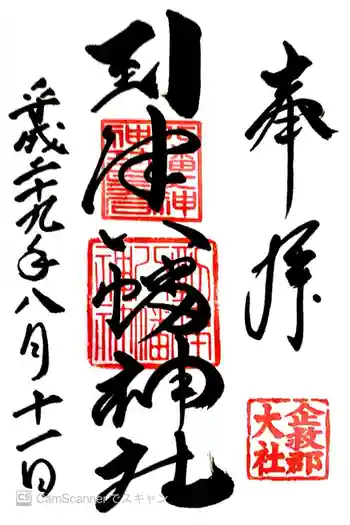 奉拝
企救郡
大社
到津八幡神社
平成二十九年八月十一日
CS CamScannerでスキャン